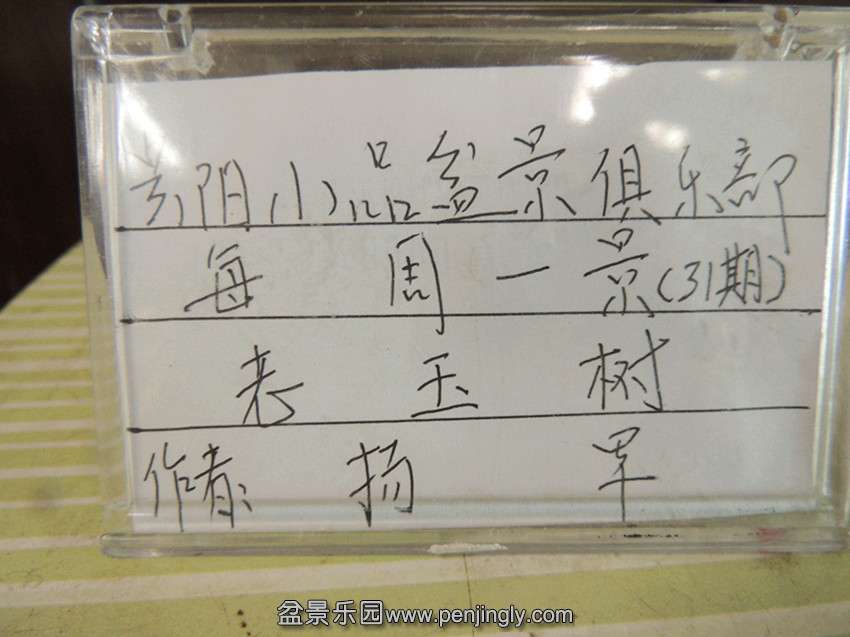 贵阳小品盆景俱乐部
每周一景(31期)
老玉树
作者: 扬
盆景乐园www.penjingly.com